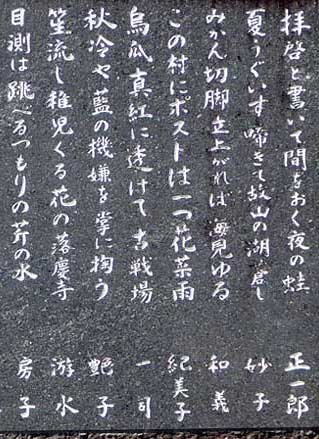 拝啓と書いて間をおく夜の蛙　正一郎
夏うぐいす啼きて故山の湖君し　妙子
みかん切脚立上がれば海見ゆる　和義
この村にポストは一つ花菜雨　紀美子
烏瓜真紅に透けて古戦場　一司
秋冷や藍の機嫌を掌に掬う　艶子
笙流し稚児くる花の落慶寺　游水
目測は跳べるつもりの芹の水　房子